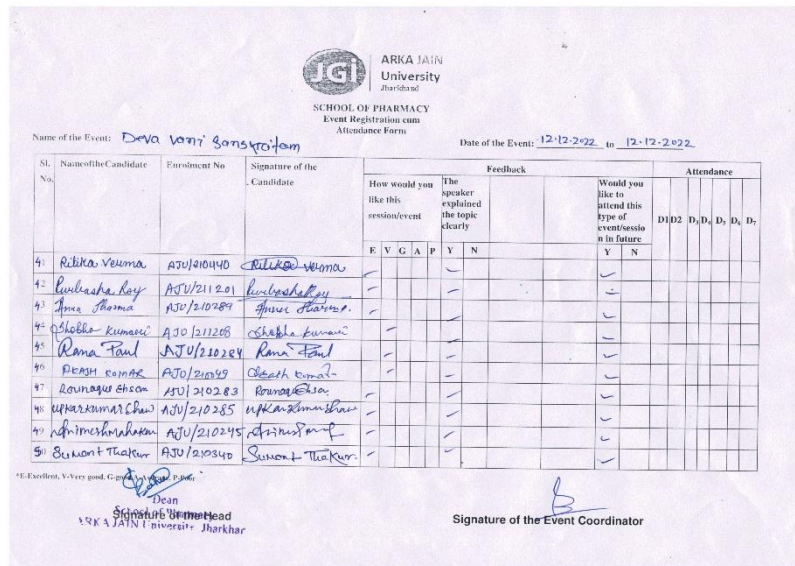 JGi
ARKA JAIN
University
Jharkhand
SCHOOL OF PHARMACY
Event Registration cum
Attendance Form
Name of the Event: Deva vani Sanskritam
Date of the Event: 12-12-2022 to 12-12-2022
Sl. No. NameoftheCandidate Enrolment No Signature of the Candidate Feedback Attendance
How would you like this session/event
The speaker explained the topic clearly
Would you like to attend this type of event/sessio n in future
D1 D2 D3 D4 D5 D6 D7
E V G A P Y N Y N
41 Ritika Verma AJU/210440 Ritika Verma
42 Purbasha Roy AJU/211201 Purbasha Roy
43 Sharma AJU/210289 Sharma
44 Shobha Kumari AJU/211208 Shobha Kumari
45 Rana Paul AJU/210284 Rana Paul
46 AKASH KUMAR AJU/210049 Akash Kumar
47 Rounaque Ehsan AJU/210283 Rounaque Ehsan
48 Upkar kumar Shaw AJU/210285 Upkar Kumar Shaw
49 Animesh Mahakur AJU/210245
50 Sumant Thakur AJU/210340 Sumant Thakur
*E-Excellent, V-Very good, G-good, A-Average, P-Poor
Dean
School of Pharmacy
Signature of the Head
ARKA JAIN University Jharkhan
Signature of the Event Coordinator